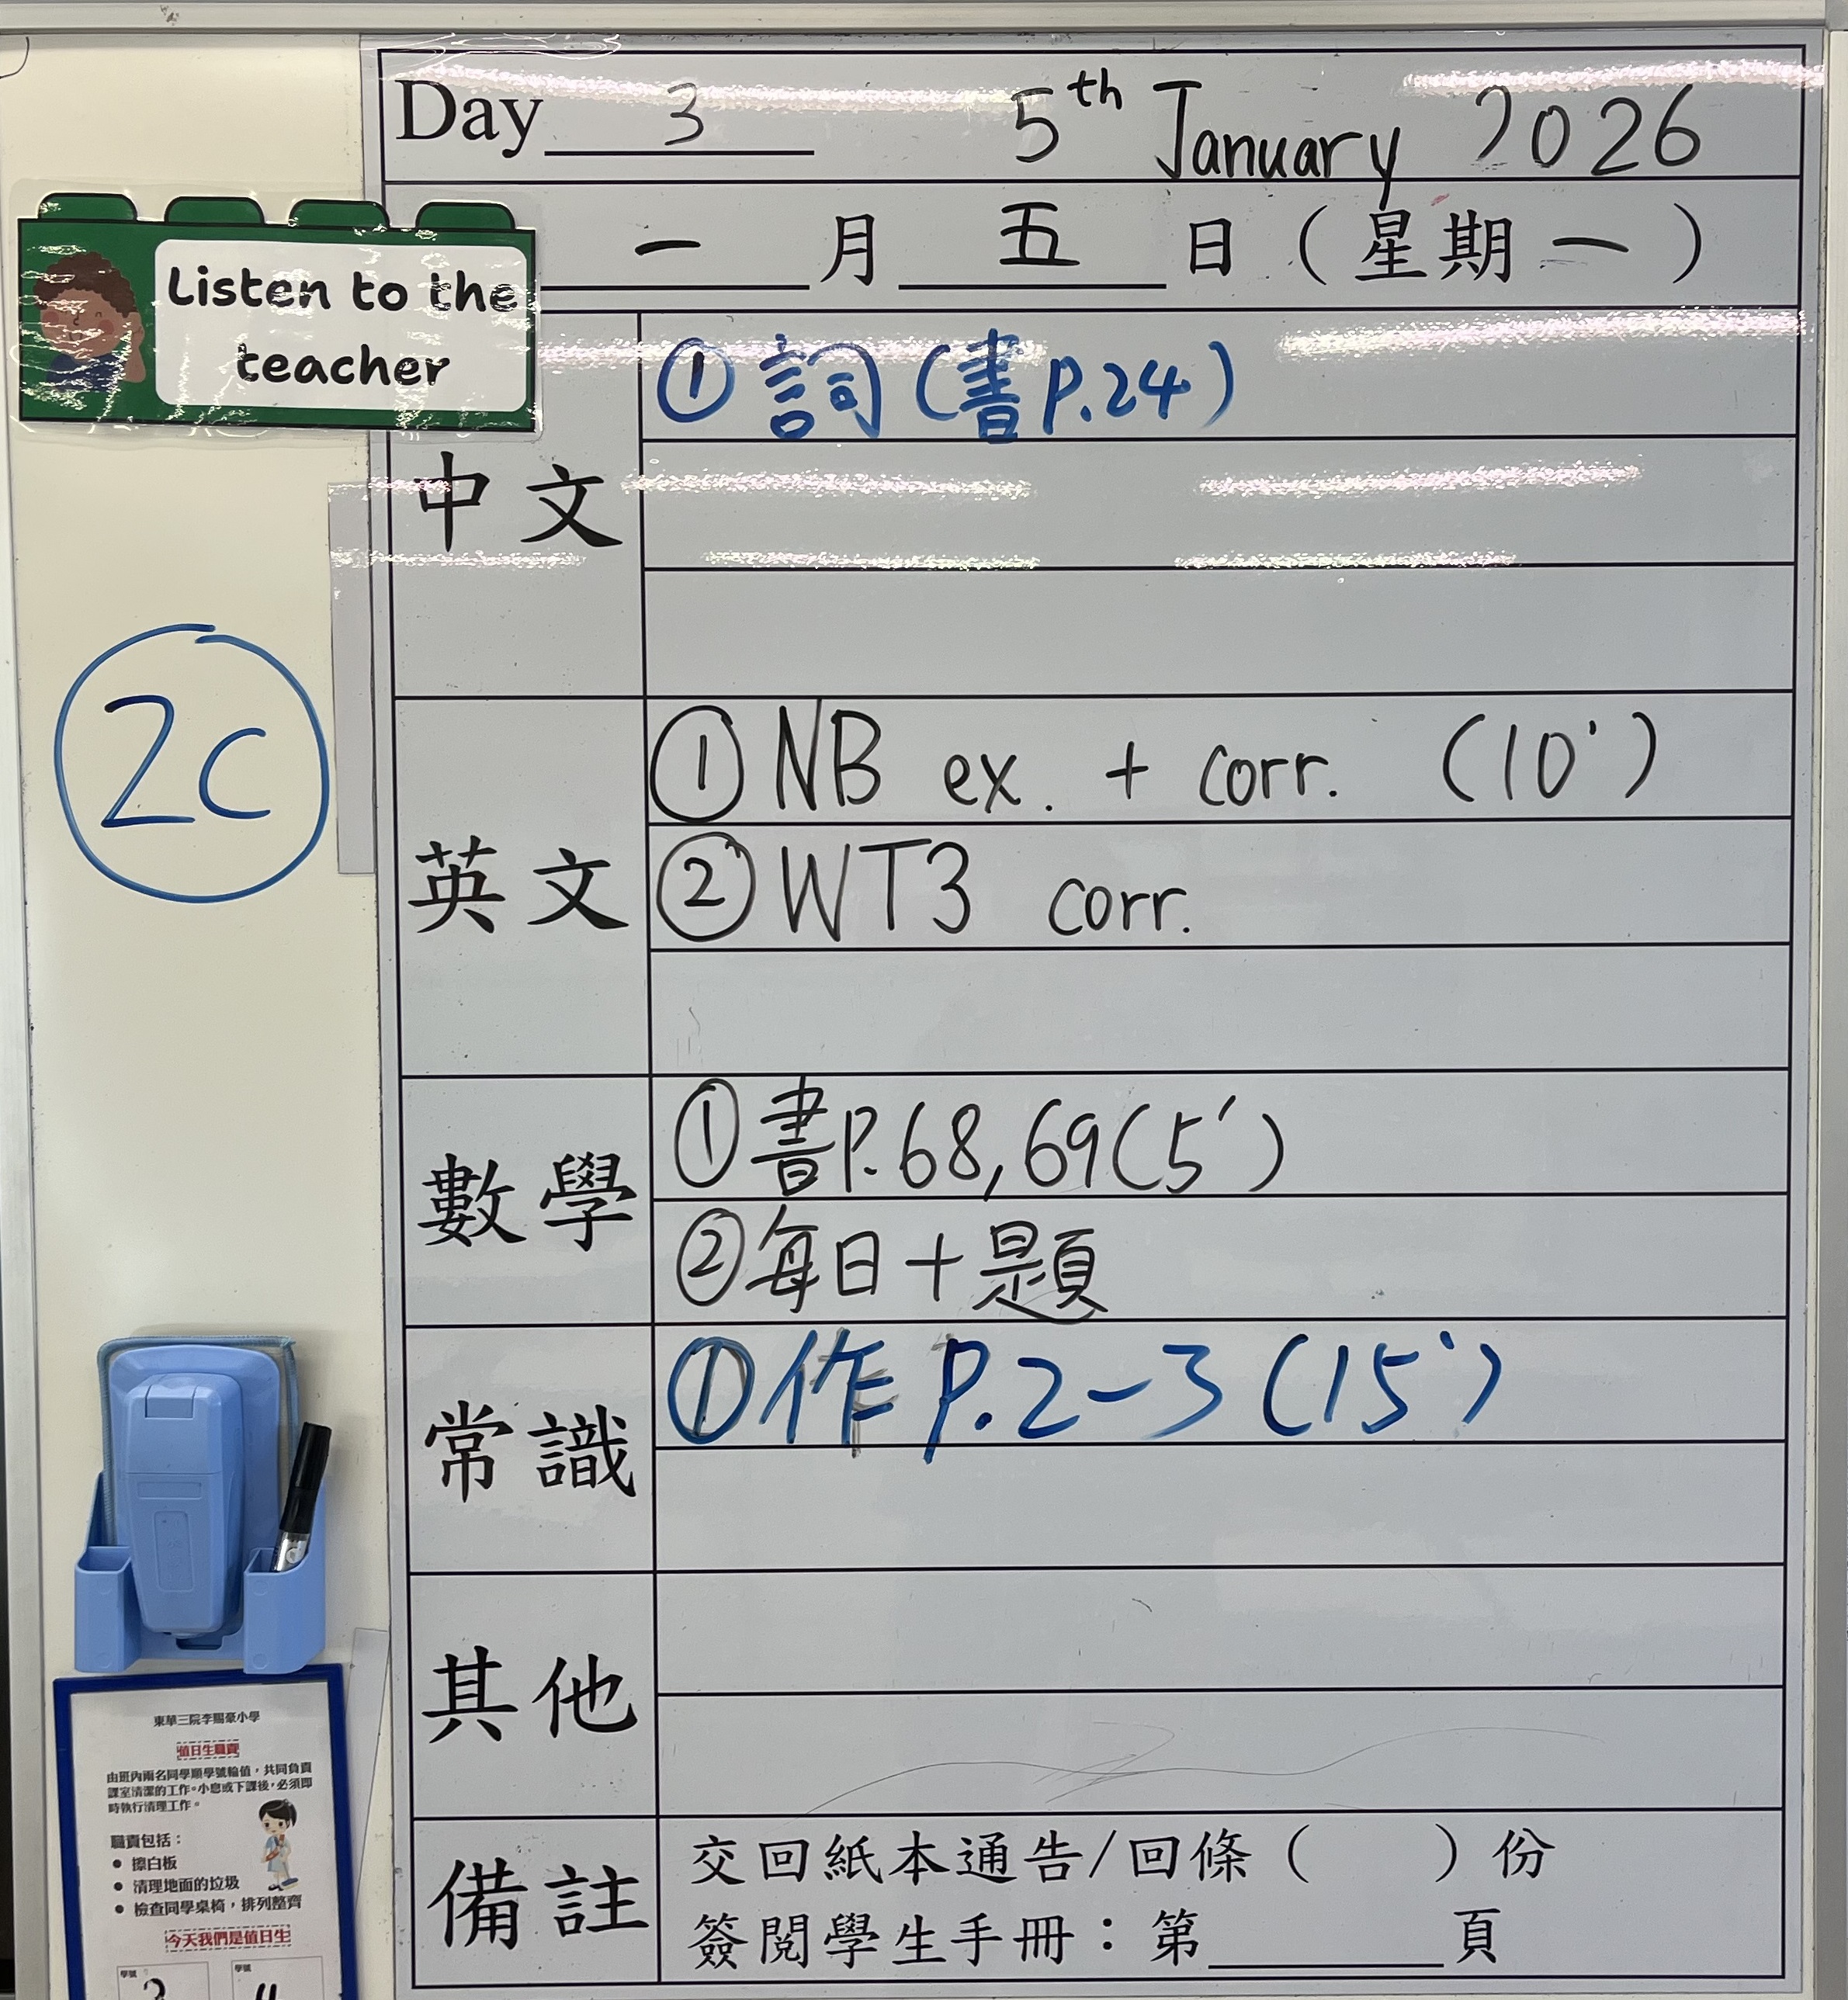 Day 3 5th January 2026
一 月 五 日（星期一）
Listen to the
teacher
中文
① 詞（書P.24）
2C
英文
① NB ex. + corr. (10')
② WT3 corr.
數學
① 書P.68, 69 (5')
② 每日十題
常識
① 作 P.2-3 (15')
其他
備註
交回紙本通告/回條（ ）份
簽閱學生手冊：第 頁
東華三院李賜豪小學
值日生職責
由班內兩名同學順學號輪值，共同負責
課室清潔的工作。小息或下課後，必須即
時執行清理工作。
職責包括：
• 擦白板
• 清理地面的垃圾
• 檢查同學桌椅，排列整齊
今天我們是值日生
學號 學號
3 4